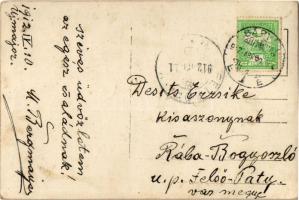 1912 IV. 10.
Ujmajor.
Szives üdvözletem
az egész családnak!
M. Bergmayer
Deséts Erzsike
kisasszonynak
Rába-Bogyoszló
u. p. Felső-Paty.
vas megye